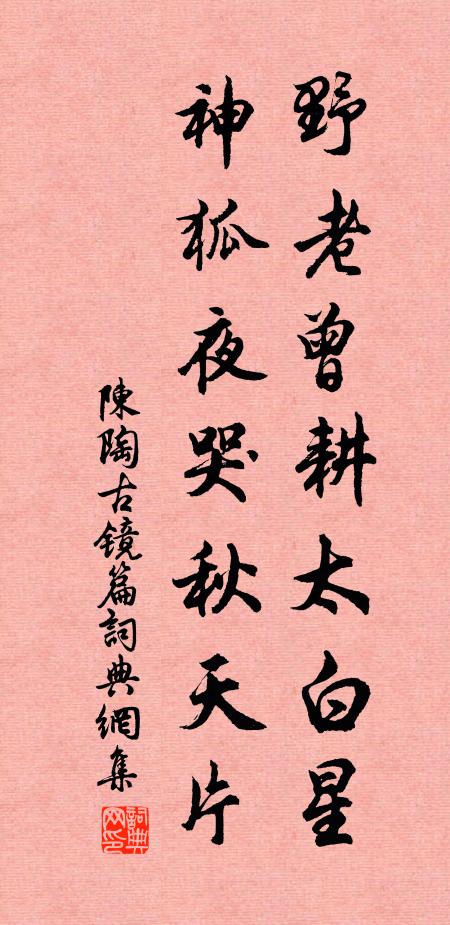 野老曾耕太白星
神狐夜哭秋天片
陳陶古镜篇詞典網集
詞典网印